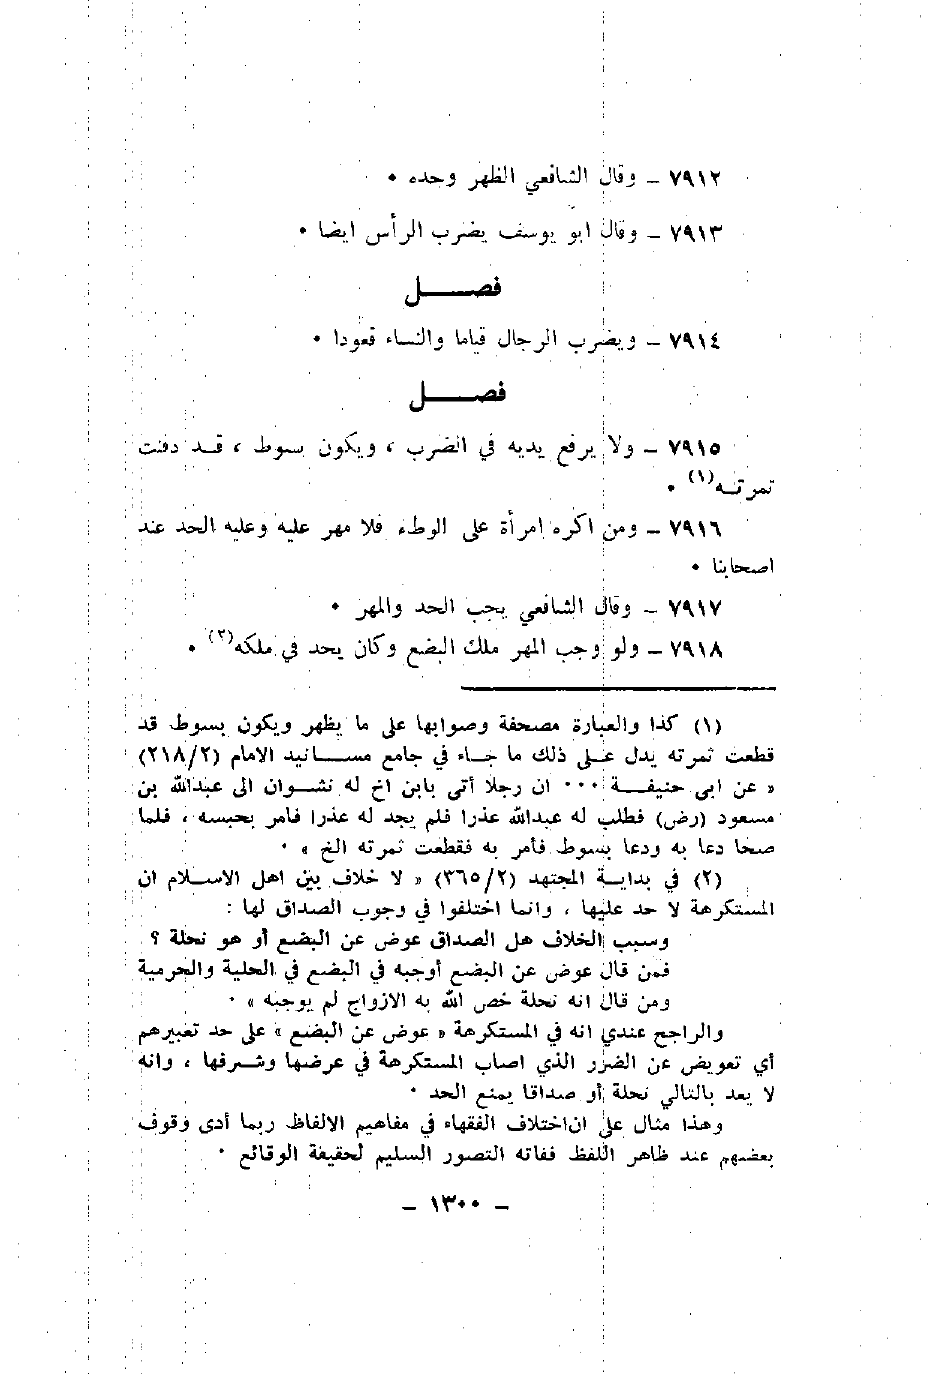 ٧٩١٢ ــ وقال الشافعي الظهر وحده ٠
٧٩١٣ ــ وقال ابو يوسف يضرب الرأس ايضا ٠
فصـــــل
٧٩١٤ ــ ويضرب الرجال قياما والنساء قعودا ٠
فصـــــل
٧٩١٥ ــ ولا يرفع يديه في الضرب ، ويكون بسوط ، قـد دفنت
تمرتـه(١) ٠
٧٩١٦ ــ ومن اكره امرأة على الوطء فلا مهر عليه وعليه الحد عند
اصحابنا ٠
٧٩١٧ ــ وقال الشافعي يجب الحد والمهر ٠
٧٩١٨ ــ ولو وجب المهر ملك البضع وكان يحد في ملكه(٢) ٠
(١) كذا والعبارة مصحفة وصوابها على ما يظهر ويكون بسوط قد
قطعت ثمرته يدل عـلى ذلك ما جـاء في جامع مســانيد الامام (٢١٨/٢)
« عن ابى حنيفـــة ٠٠٠ ان رجلا أتى بابن اخ له نشـوان الى عبدالله بن
مسعود (رض) فطلب له عبدالله عذرا فلم يجد له عذرا فامر بحبسه ، فلما
صحا دعا به ودعا بسوط فأمر به فقطعت ثمرته الخ » ٠
(٢) في بدايـة المجتهد (٣٦٥/٢) « لا خلاف بين اهل الاسـلام ان
المستكرهة لا حد عليها ، وانما اختلفوا في وجوب الصداق لها :
وسبب الخلاف هل الصداق عوض عن البضع أو هو نحلة ؟
فمن قال عوض عن البضع أوجبه في البضع في الحلية والحرمية
ومن قال انه نحلة خص الله به الازواج لم يوجبه » ٠
والراجح عندي انه في المستكرهة « عوض عن البضع » على حد تعبيرهم
أي تعويض عن الضرر الذي اصاب المستكرهة في عرضها وشـرفها ، وانه
لا يعد بالتالي نحلة أو صداقا يمنع الحد ٠
وهذا مثال على ان اختلاف الفقهاء في مفاهيم الالفاظ ربما أدى وقوف
بعضهم عند ظاهر اللفظ ففاته التصور السليم لحقيقة الوقائع ٠
ــ ١٣٠٠ ــ